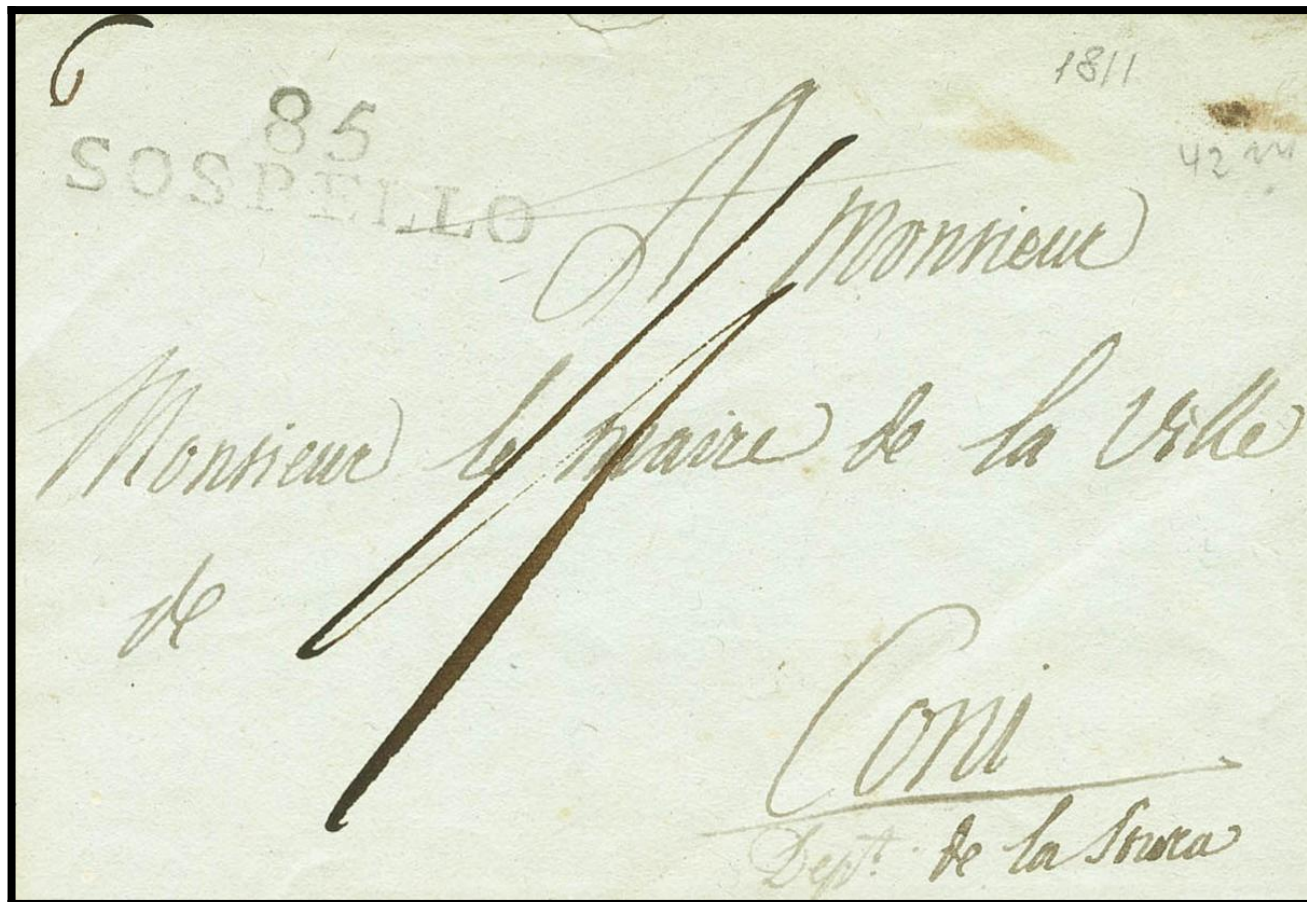 1811
85
SOSPELLO
42
A Monsieur
Monsieur le maire de la Ville
de
Coni
Dept. de la Stura